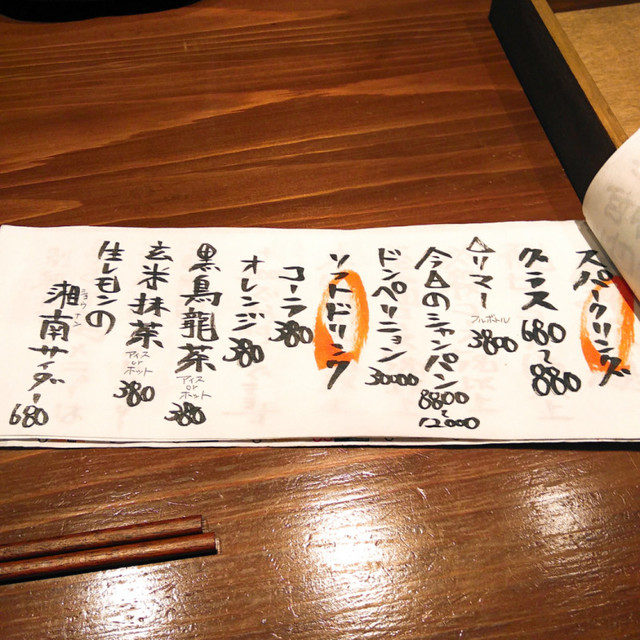 スパークリング
グラス 680〜880
△リマー フルボトル 3800
今日のシャンパン 8800〜12000
ドンペリニョン 30000
ソフトドリンク
コーラ 380
オレンジ 380
黒烏龍茶 アイス or ホット 380
玄米抹茶 アイス or ホット 380
生レモンの
湘南サイダー ショウナン 680